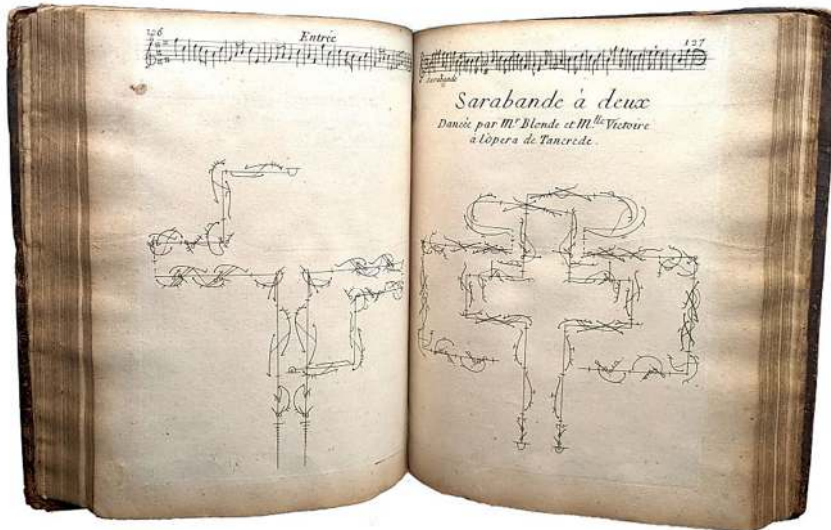 126
Entrée
127
Sarabande
Sarabande à deux
Dancée par Mr. Blonde et M.lle Victoire
à lôpera de Tancrede.